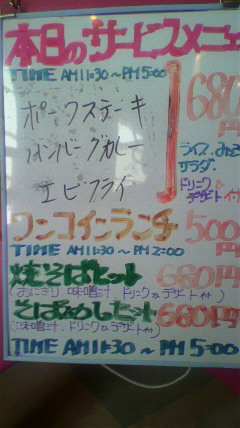 本日のサービスメニュ
TIME AM11:30 ~ PM5:00
680円
ポークステーキ
ハンバーグカレー
エビフライ
ライス、みそ
サラダ、
ドリンク&
デザート付
ワンコインランチ 500円
TIME AM11:30 ~ PM2:00
焼そばセット 680円
(おにぎり、味噌汁、ドリンク&デザート付)
そばめしセット 680円
(味噌汁、ドリンク&デザート付)
TIME AM11:30 ~ PM5:00